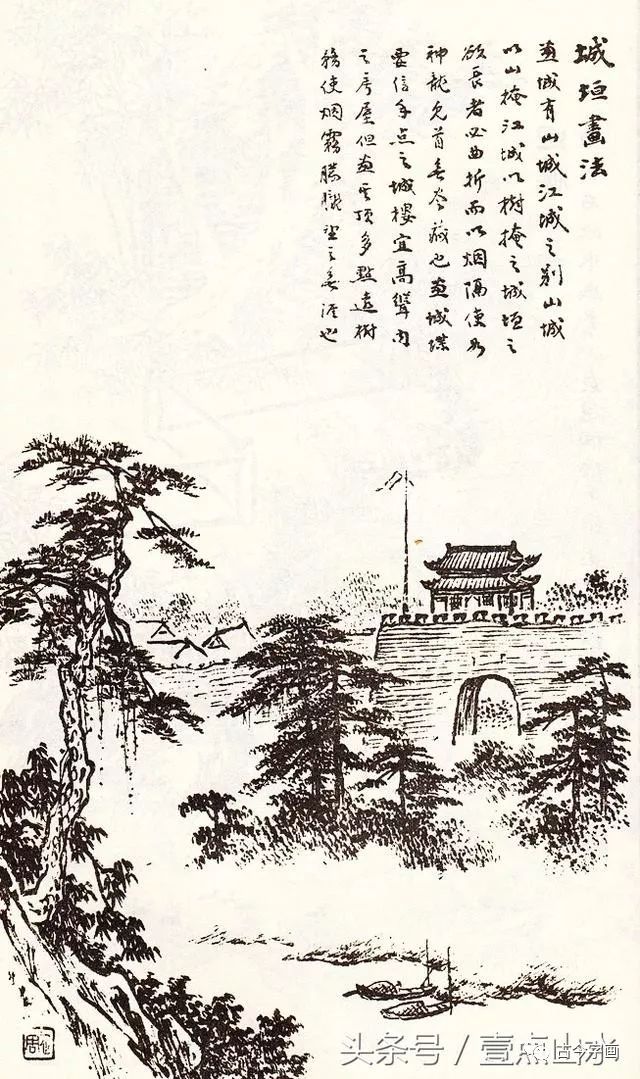 城垣畫法
畫城有山城江城之别山城
以山掩江城以樹掩之城垣之
欲長者必曲折而以烟隔使如
神龍見首無藏也畫城堞
要信手点之城樓宜高聳内
之房屋但畫其頂多點遠樹
務使烟霧朦朧望之無涯也
头条号 / 壹点山水
古今字画